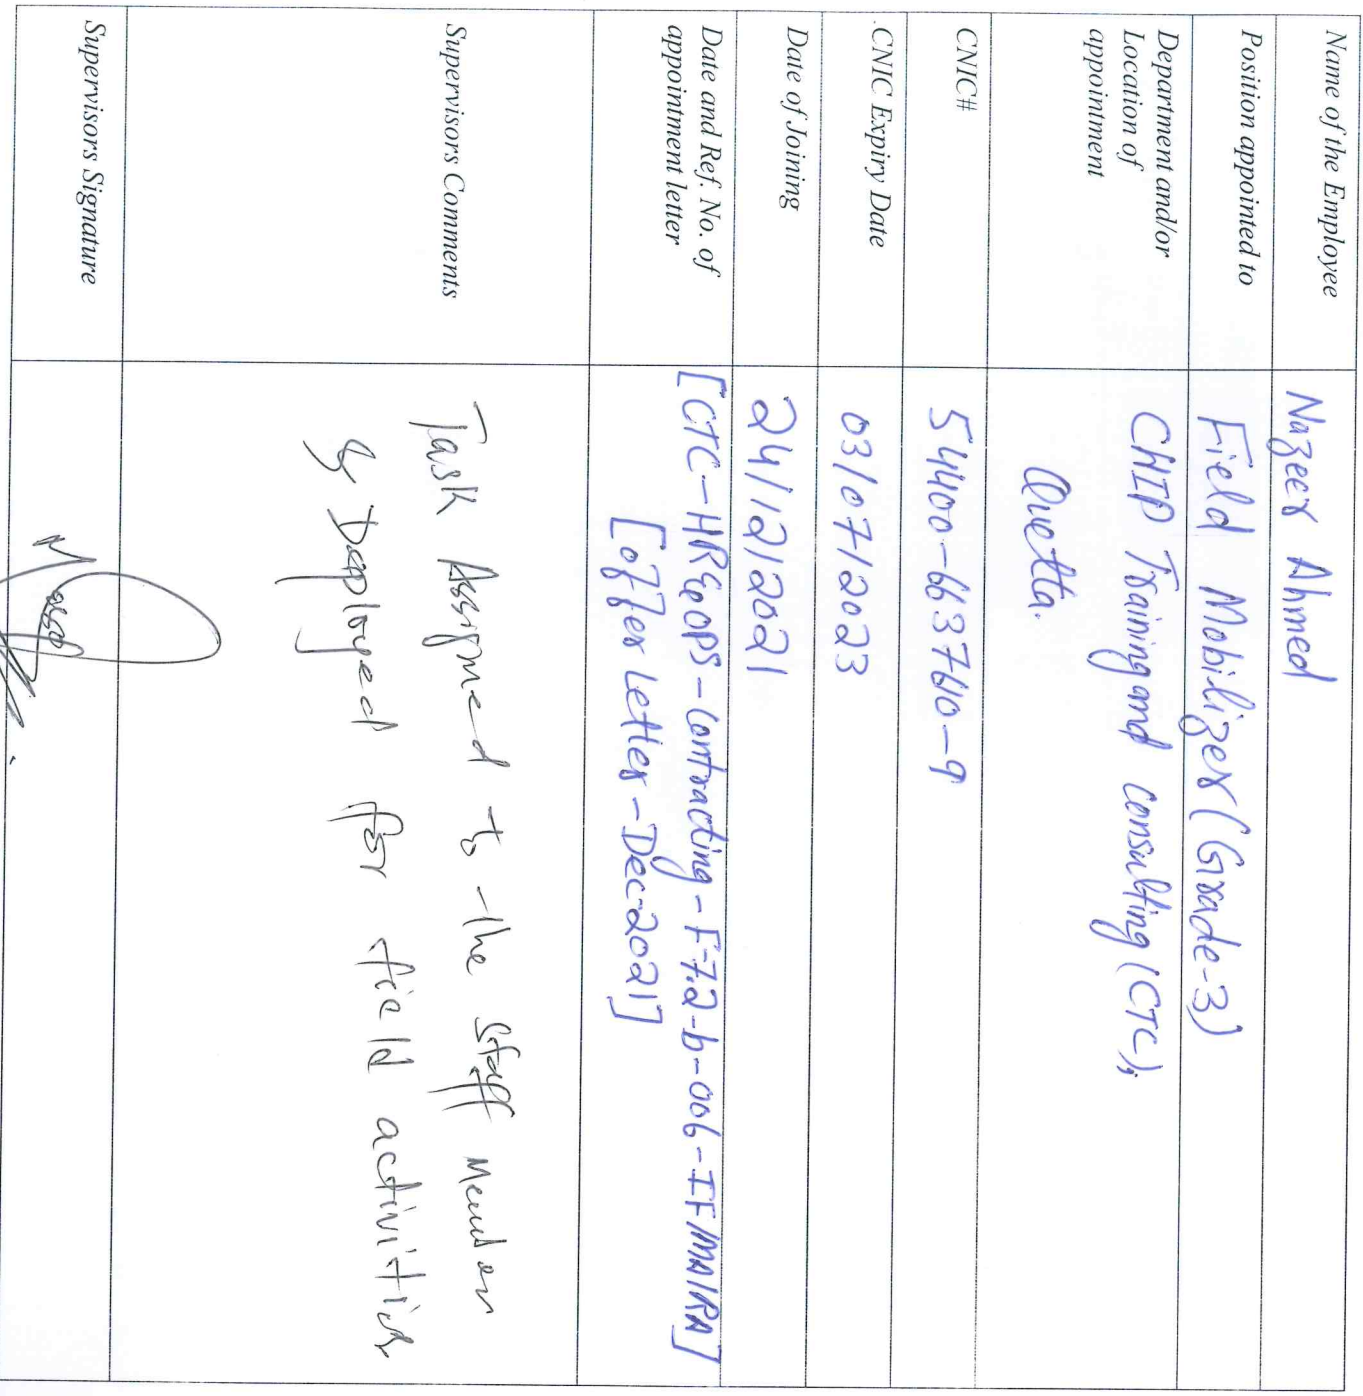 Name of the Employee
Nazeer Ahmed
Position appointed to
Field Mobilizer (Grade-3)
Department and/or
Location of
appointment
CHIP Training and consulting (CTC),
Quetta.
CNIC#
54400-6637610-9
.CNIC Expiry Date
03/07/2023
Date of Joining
24/12/2021
Date and Ref. No. of
appointment letter
[CTC-HR&OPS-Contracting-F-7.2-b-006-IF/MA/RA]
[offer Letter-Dec-2021]
Supervisors Comments
Task Assigned to the staff Member
& Deployed for field activities
Supervisors Signature